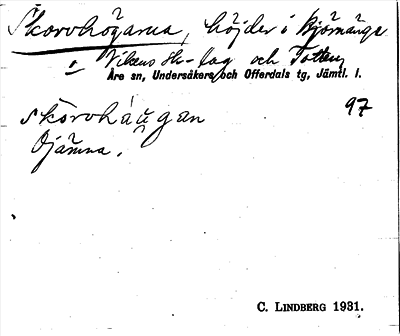 Skorvhögarna, höjder i Björnänge
o. Vikens sk-lag och Totten
Åre sn, Undersåkers och Offerdals tg, Jämtl. l.
skorvháu̯gan 97
Ojämna.
C. LINDBERG 1931.